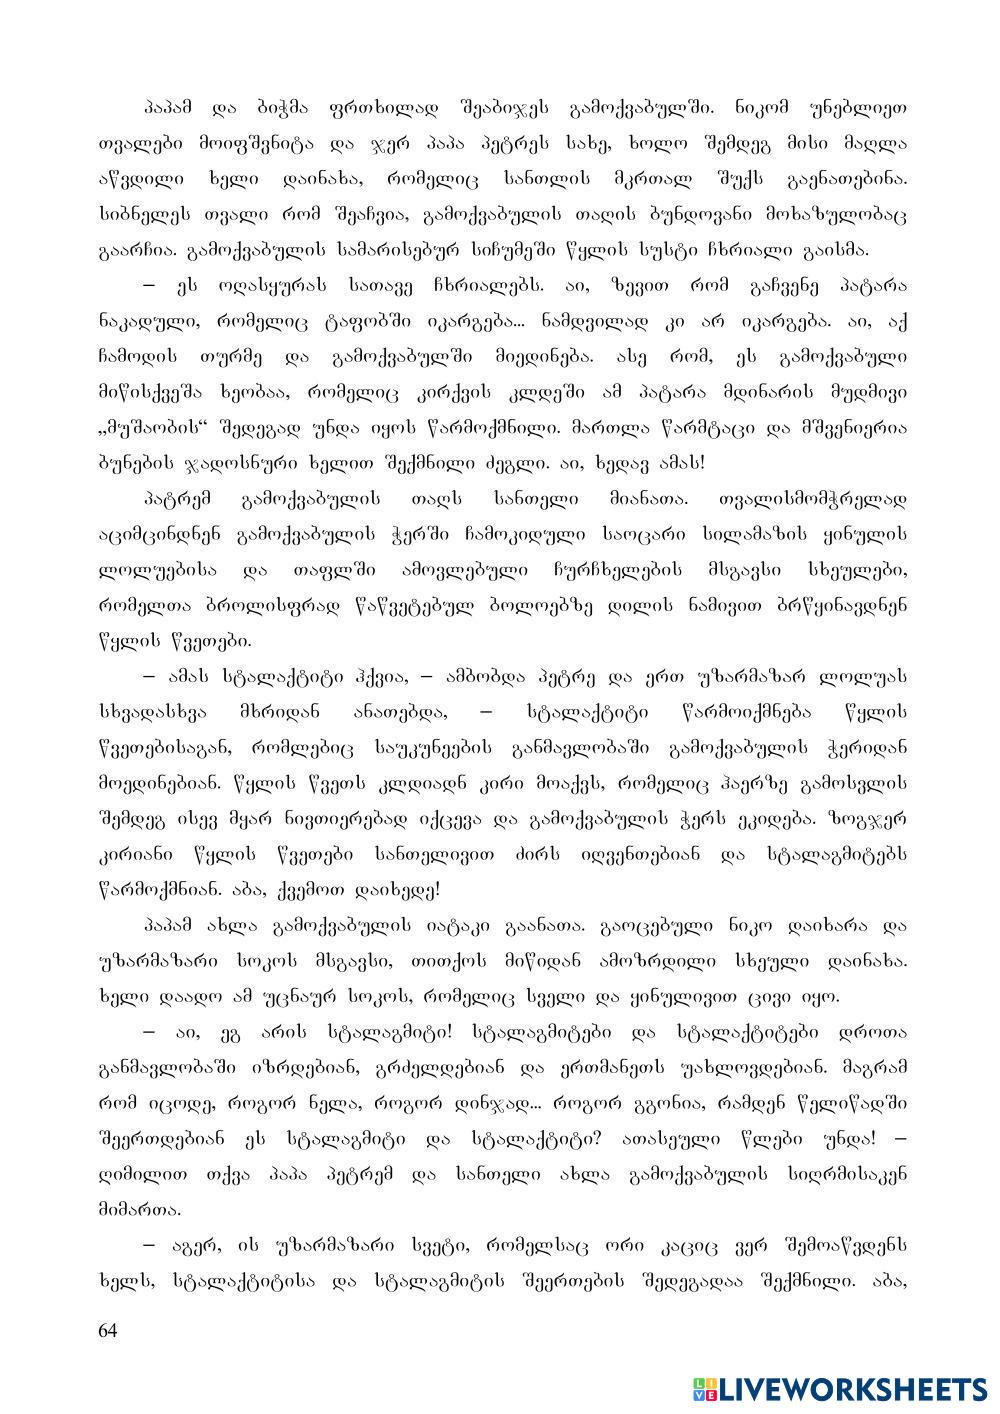 პაპამ და ბიჭმა ფრთხილად შეაბიჯეს გამოქვაბულში. ნიკომ უნებლიეთ
თვალები მოიფშვნიტა და ჯერ პაპა პეტრეს სახე, ხოლო შემდეგ მისი მაღლა
აწვდილი ხელი დაინახა, რომელიც სანთლის მკრთალ შუქს გაენათებინა.
სიბნელეს თვალი რომ შეაჩვია, გამოქვაბულის თაღის ბუნდოვანი მოხაზულობაც
გაარჩია. გამოქვაბულის სამარისებურ სიჩუმეში წყლის სუსტი ჩხრიალი გაისმა.
– ეს ოღასყურას სათავე ჩხრიალებს. აი, ზევით რომ გაჩვენე პატარა
ნაკადული, რომელიც ტაფობში იკარგება... ნამდვილად კი არ იკარგება. აი, აქ
ჩამოდის თურმე და გამოქვაბულში მიედინება. ასე რომ, ეს გამოქვაბული
მიწისქვეშა ხეობაა, რომელიც კირქვის კლდეში ამ პატარა მდინარის მუდმივი
„მუშაობის“ შედეგად უნდა იყოს წარმოქმნილი. მართლა წარმტაცი და მშვენიერია
ბუნების ჯადოსნური ხელით შექმნილი ძეგლი. აი, ხედავ ამას!
პატრემ გამოქვაბულის თაღს სანთელი მიანათა. თვალისმომჭრელად
აციმციმდნენ გამოქვაბულის ჭერში ჩამოკიდული საოცარი სილამაზის ყინულის
ლოლუებისა და თაფლში ამოვლებული ჩურჩხელების მსგავსი სხეულები,
რომელთა ბროლისფრად წაწვეტებულ ბოლოებზე დილის ნამივით ბრწყინავდნენ
წყლის წვეთები.
– ამას სტალაქტიტი ჰქვია, – ამბობდა პეტრე და ერთ უზარმაზარ ლოლუას
სხვადასხვა მხრიდან ანათებდა, – სტალაქტიტი წარმოიქმნება წყლის
წვეთებისაგან, რომლებიც საუკუნეების განმავლობაში გამოქვაბულის ჭერიდან
მოედინებიან. წყლის წვეთს კლდიადნ კირი მოაქვს, რომელიც ჰაერზე გამოსვლის
შემდეგ ისევ მყარ ნივთიერებად იქცევა და გამოქვაბულის ჭერს ეკიდება. ზოგჯერ
კირიანი წყლის წვეთები სანთელივით ძირს იღვენთებიან და სტალაგმიტებს
წარმოქმნიან. აბა, ქვემოთ დაიხედე!
პაპამ ახლა გამოქვაბულის იატაკი გაანათა. გაოცებული ნიკო დაიხარა და
უზარმაზარი სოკოს მსგავსი, თითქოს მიწიდან ამოზრდილი სხეული დაინახა.
ხელი დაადო ამ უცნაურ სოკოს, რომელიც სველი და ყინულივით ცივი იყო.
– აი, ეგ არის სტალაგმიტი! სტალაგმიტები და სტალაქტიტები დროთა
განმავლობაში იზრდებიან, გრძელდებიან და ერთმანეთს უახლოვდებიან. მაგრამ
რომ იცოდე, როგორ ნელა, როგორ დინჯად... როგორ გგონია, რამდენ წელიწადში
შეერთდებიან ეს სტალაგმიტი და სტალაქტიტი? ათასეული წლები უნდა! –
ღიმილით თქვა პაპა პეტრემ და სანთელი ახლა გამოქვაბულის სიღრმისაკენ
მიმართა.
– აგერ, ის უზარმაზარი სვეტი, რომელსაც ორი კაციც ვერ შემოაწვდენს
ხელს, სტალაქტიტისა და სტალაგმიტის შეერთების შედეგადაა შექმნილი. აბა,
64
LIVEWORKSHEETS